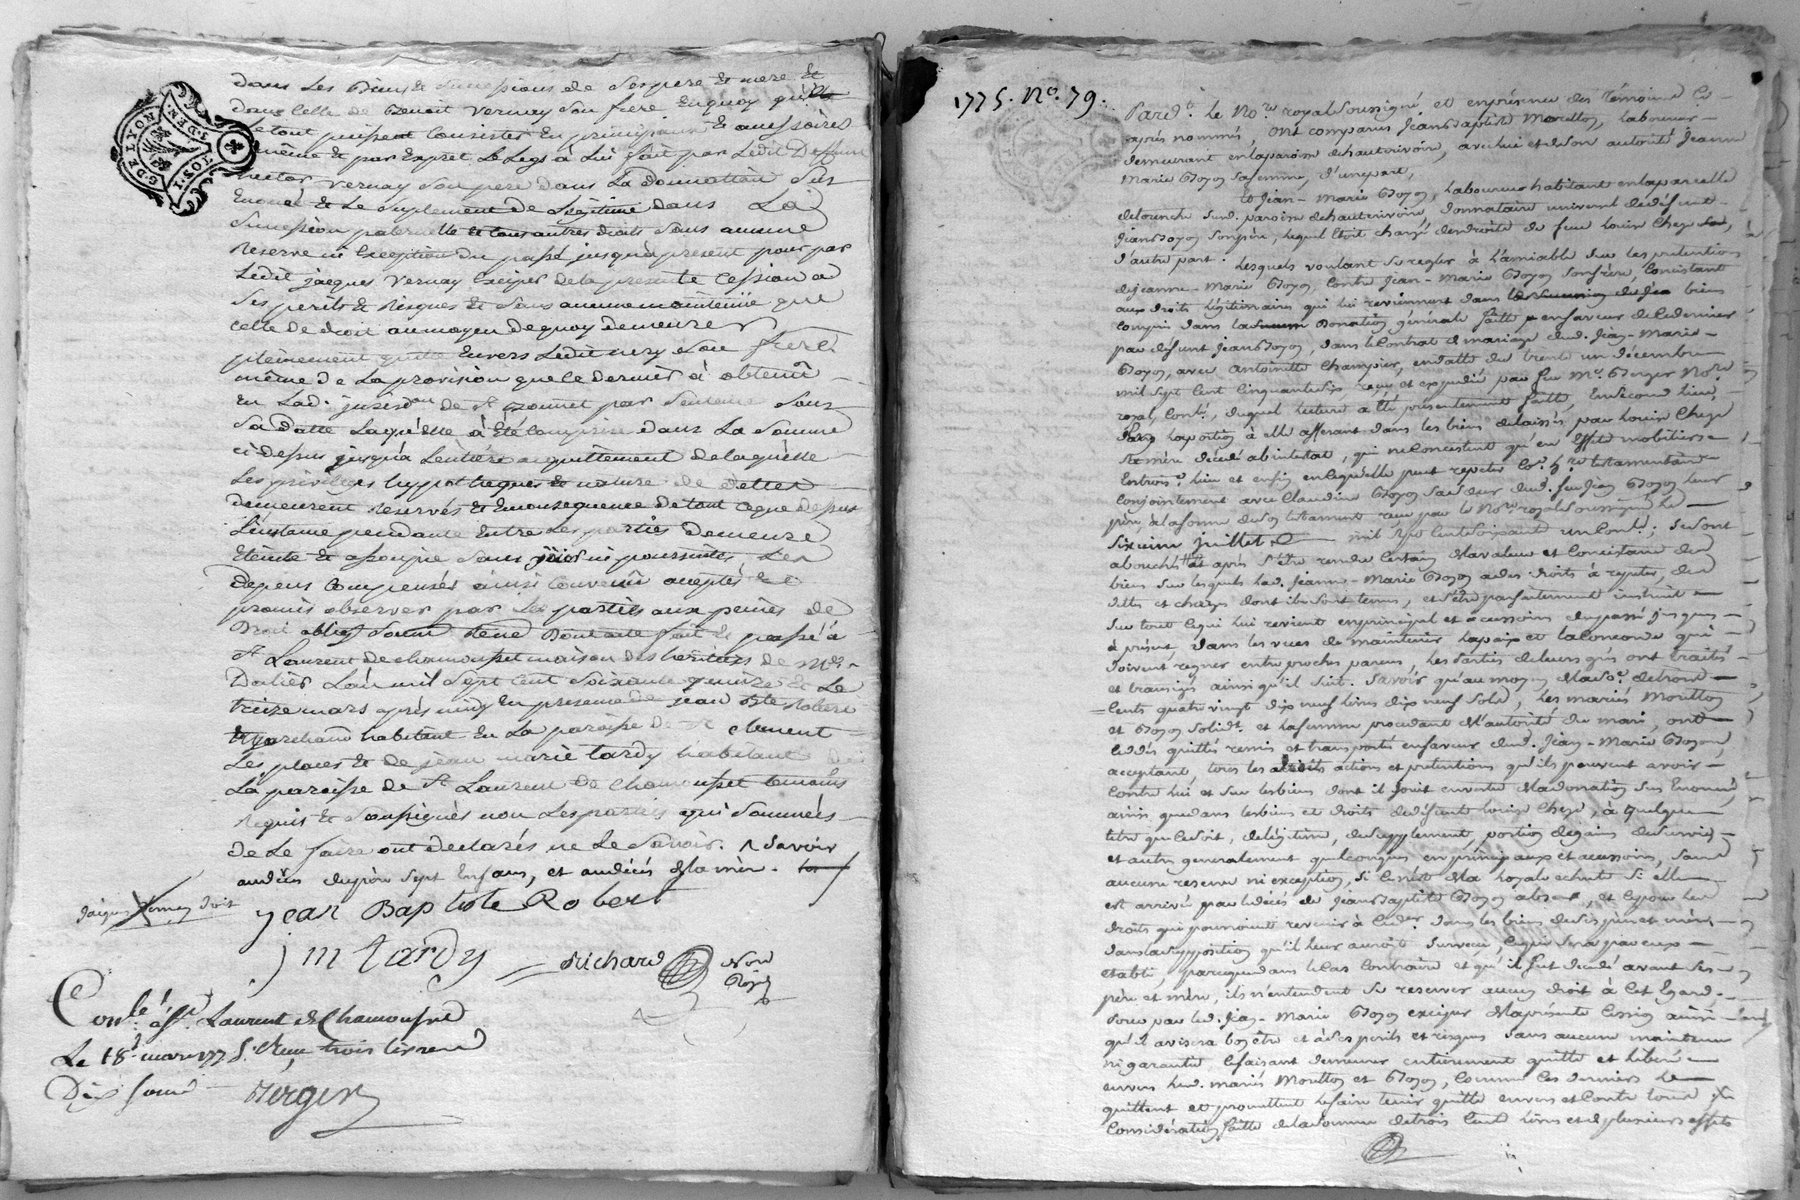 G.D.E LYON
2.S.1.DEN.
dans Les Biens & Successions de Ses pere & mere &
dans Celle de Benoit Vernay Son frere En quoy qu'ils
Le tout puissent Consister En principaux & accessoires
même & par Expret Le Legs à Lui fait par Ledit Deffunt
Vernay Son pere dans La Donnation Sus
Enoncée & Le Suplement de Légitime dans La
Succession paternelle & tous autres droits Sans aucune
Reserve ni Exception du passé jusqu'à présent pour par
Ledit jacques Vernay de la presente Cession à
Ses perils & Risques & Sans aucune maintenüe que
Celle de droit au moyen de quoy demeure
pleinement quitte Envers Ledit Son frere
même de La provision que le dernier à obtenüe
En Lad. jurisd.on de par Sentence Sous
Sa datte Laquelle à Eté Comprise dans La Somme
ci dessus jusqu'à L'entière acquittement de laquelle
Les privileges hypotheques & nature de dettes
demeurent reservés Et En consequence de tout ce que dessus
L'instance pendante Entre Les parties Demeure
Eteinte & assoupie Sans ni poursuites, Les
Depens Compensés ainsi Convenu accepté &
promis observer par Les parties aux peines de
Droit fait & passé à
St Laurent de chamousset maison des héritiers de Mr
Dalier L'an mil Sept Cent Soixante quinze & Le
treize mars après midy En presence de jean Bte Robert
Marchand habitant En La paroisse de St Clement
Les places & de jean marie tardy habitant de
La paroisse de St Laurent de Chamousset temoins
Requis & Soussignés non Les parties qui Sommées
de Le faire ont declarés ne Le Savoir. A Savoir
audiès du père Sept Enfans, et audiès de la mère.
jean Baptiste Robert
j m tardy Richard Nore
Royal
Conlé à St Laurent de Chamousset
Le 18 mars 1775. Reçu trois livres
Dix Sous
1775. N.o 79.
Pard.t le No.re royal Soussigné et en présence des témoins Cy-
après nommés, ont comparus Jean Baptiste Moretton, laboureur
demeurant en la paroisse de hauterivoire, avec lui et de Son autorité Jeanne
Marie Goyon Sa femme, d'une part,
Et Jean-Marie Goyon, Laboureur habitant en la parcelle
Sud. paroisse de hauterivoire, donnataire universel de défunt
Jean Goyon Son père, lequel Etoit chargé des droits de feue Louise Cheze
d'autre part. Lesquels voulant Se regler à l'amiable Sur les prétentions
de Jeanne-Marie Goyon, Contre Jean-Marie Goyon Son frère, Consistant
aux droits légitimaires qui lui reviennent dans les biens
compris dans la Donation générale faite en faveur de Ce dernier
par défunt Jean Goyon, dans le Contrat de mariage dud. Jean-Marie
Goyon, avec Antoinette Champier, en datte du trente un décembre
mil Sept Cent Cinquante Six, reçu et expedié par feu Me. Berger No.re
royal, Conlé, duquel lecture a Eté présentement faite, En Second lieu
la portion à elle afferant dans les biens delaissés par Louise Cheze
Sa mère décédée abintestat, qui ne Consistent qu'en effets mobiliers
Entrois.e lieu et enfin en ce qu'elle peut repeter Co.e h.re testamentaire
Conjointement avec Claudine Goyon Sa Sœur dud. feu Jean Goyon leur
père à la forme du Son testament reçu par le No.re royal Soussigné le
Sixieme Juillet mil Sept Cent Soixante un Conlé; Se Sont
abouchés et après S'être rendu Certains de la valeur et Consistance des
biens Sur lesquels lad. Jeanne-Marie Goyon a des droits à repeter, des
dettes et charges dont ils Sont tenus, et S'être parfaitement instruit
Sur tout Ce qui lui revient en principal et accessoires du passé Jusques
à présent, dans les vues de maintenir la paix et la Concorde qui
doivent regner entre proches parens, les Parties de leurs grés ont traités
et transigés ainsi qu'il Suit. Savoir qu'au moyen de la So.e de trois
Cents quatre vingt dix neuf livres dix neuf Sols, les mariés Moretton
et Goyon Solid.t et la femme procedant de l'autorité du mari, ont
cedés quittés remis et transportés en faveur dud. Jean-Marie Goyon
acceptant, tous les droits actions et prétentions qu'ils peuvent avoir
Contre lui et Sur les biens dont il Jouit en vertu de la donation Sus Enoncée,
ainsi que dans les biens et droits de défunte Louise Cheze, à quelque
titre que Ce Soit, de légitime, de Supplement, portion de gains de Survie
et autres generalement quelconques en principaux et accessoires, Sans
aucune reserve ni exception, Si Ce n'est de la hoyale echute Si elle
est arrivée par le décès de Jean Baptiste Goyon absent, et Ce pour les
droits qui pourroient revenir à Ce der. dans les biens de Ses père et mère,
dans la Supposition qu'il leur auroit Survecu, Ce qui Sera par eux
etabli, parce que dans le Cas Contraire et qu'il fut décédé avant Ses
père et mère, ils n'entendent Se reserver aucun droit à Cet Egard.
Pour par led. Jean-Marie Goyon exciper de la présente Cession ainsi
qu'il avisera bon être et à Ses perils et risques Sans aucune maintenue
ni garantie, le faisant demeurer entièrement quitte et libéré
envers lesd. mariés Moretton et Goyon, Comme Ces derniers le
quittent et promettent le faire tenir quitte envers et Contre tous.
Considération faite de la Somme de trois Cents livres et de plusieurs effets